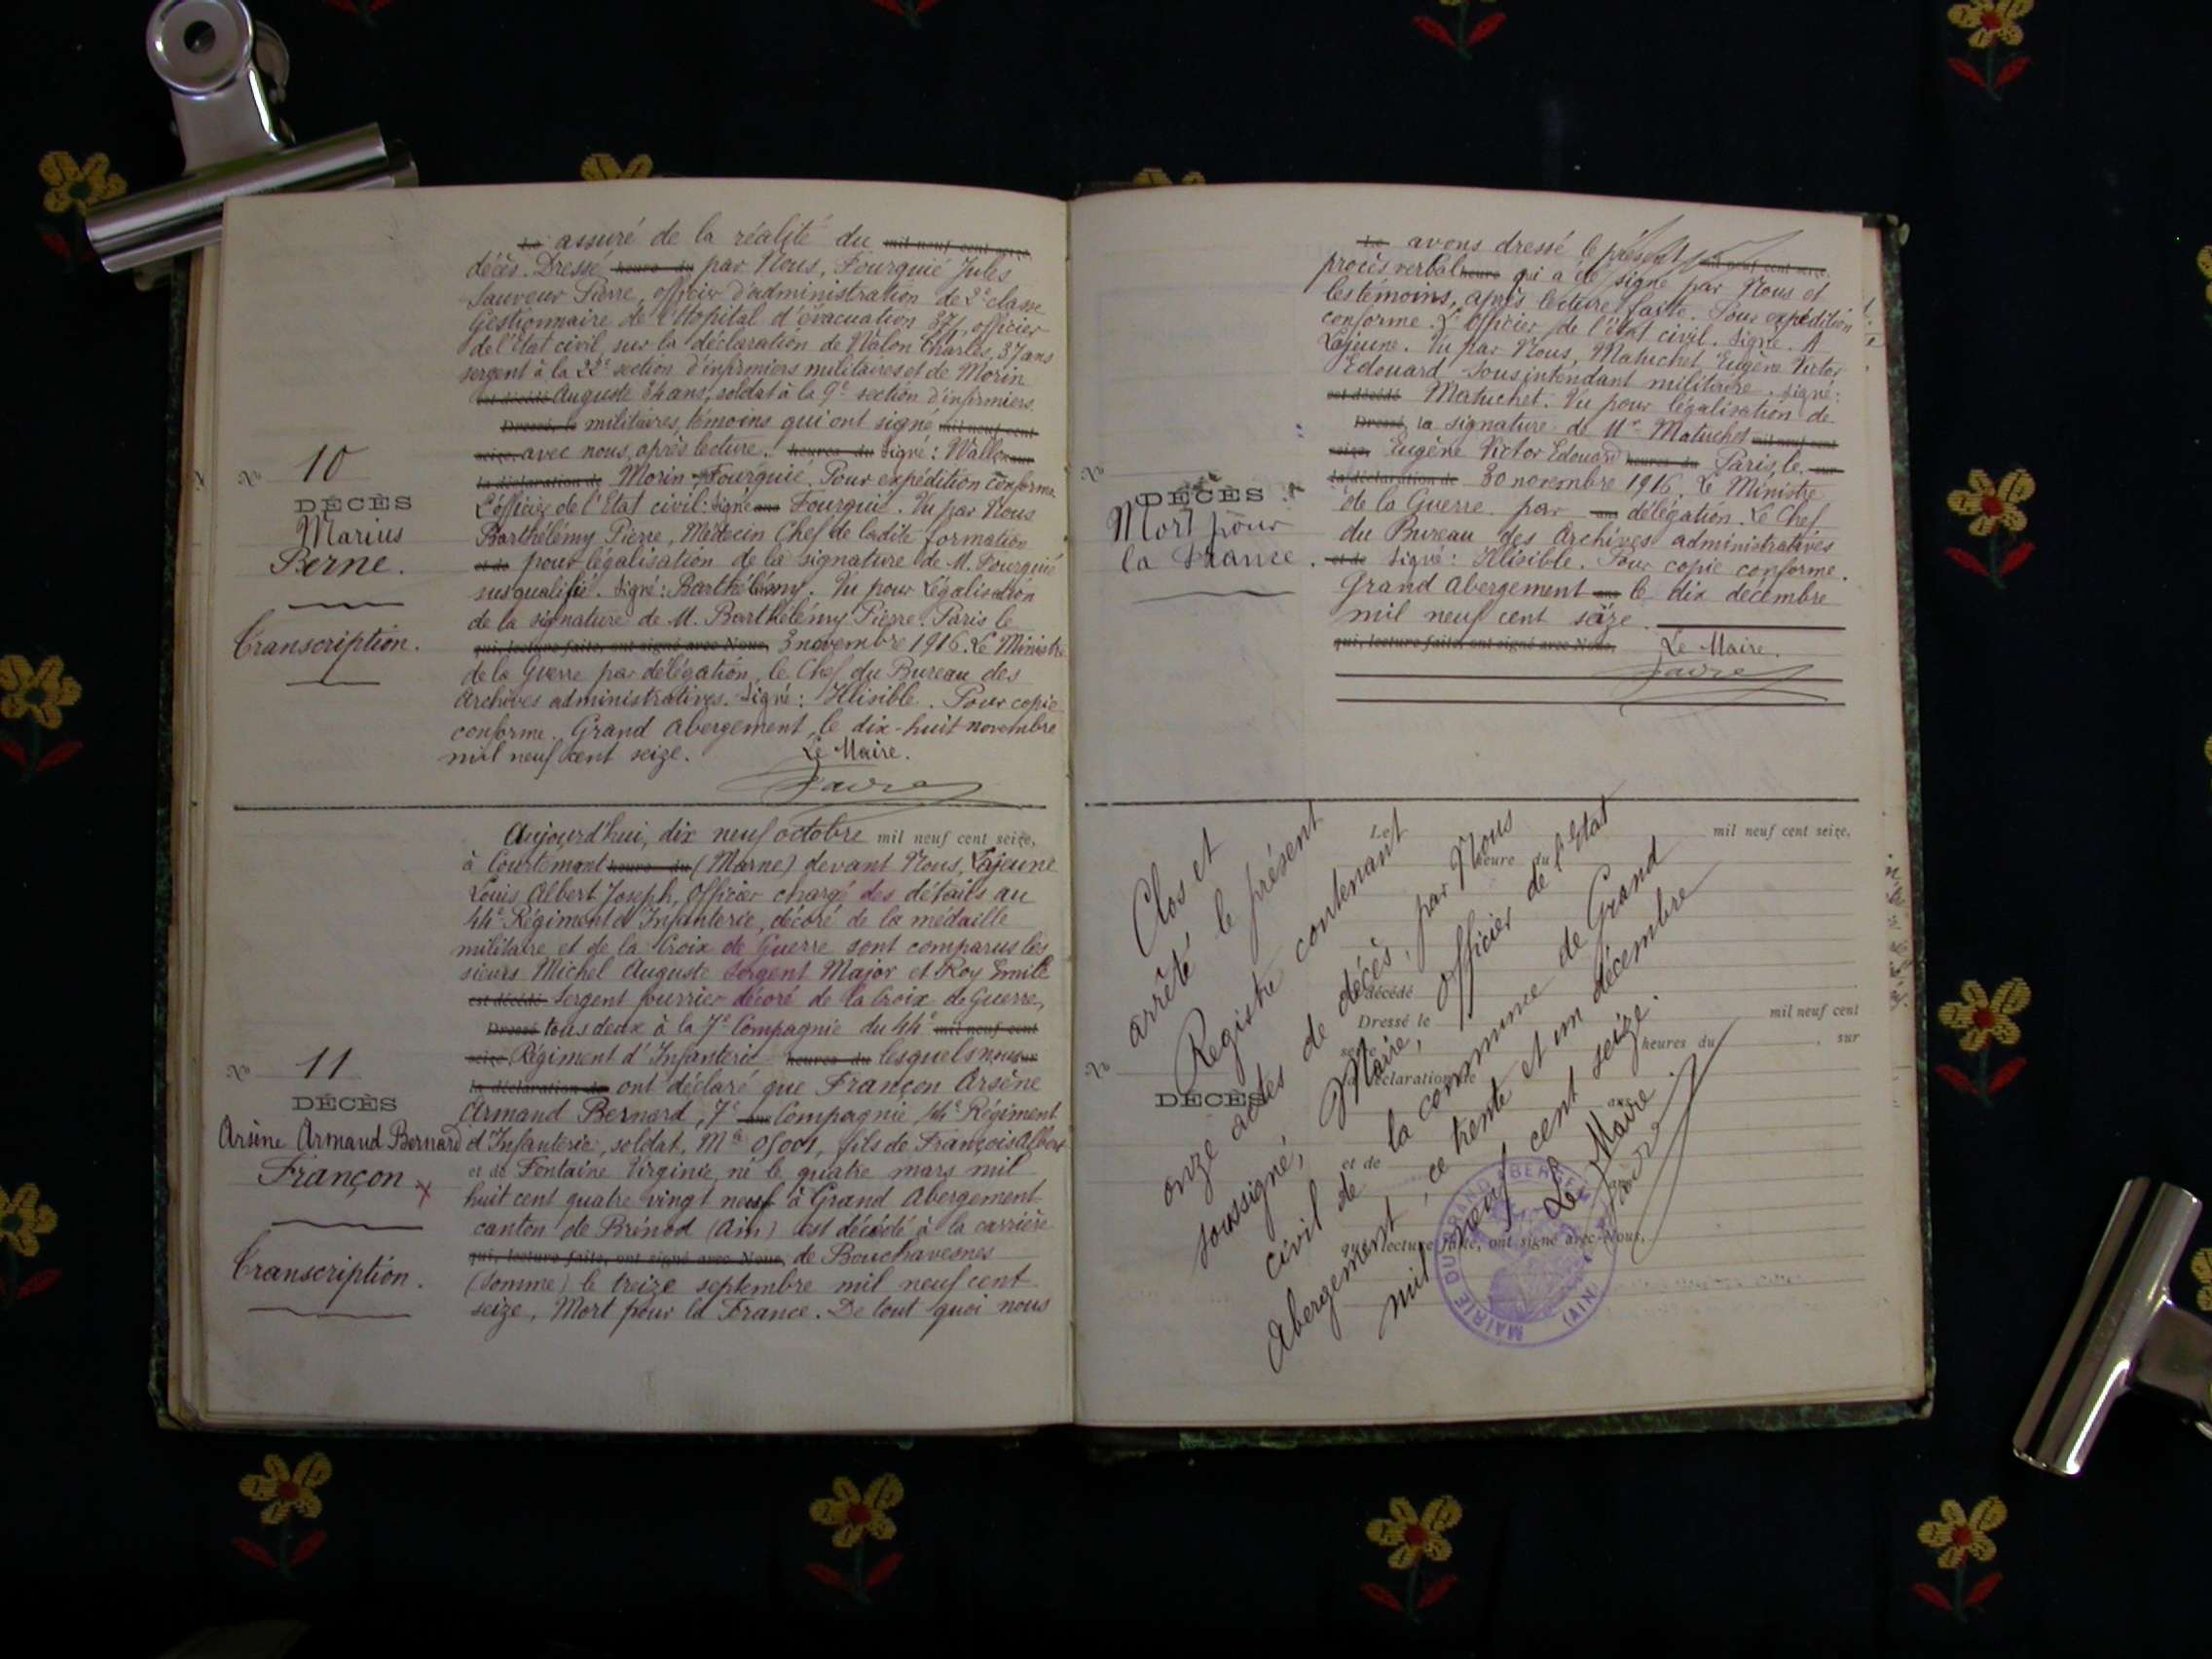 assuré de la réalité du
décès. Dressé par Nous, Fourquié Jules
Sauveur Pierre, officier d'administration de 2e classe
Gestionnaire de l'Hôpital d'évacuation 37, officier
de l'Etat civil, sur la déclaration de Charles, 37 ans
sergent à la 22e section d'infirmiers militaires et de Morin
est décédé Auguste 34 ans, soldat à la 9e section d'infirmiers
Dressé, le militaires, témoins qui ont signé mil neuf cent
seize, avec nous, après lecture. heures du Signé:
la déclaration de Morin - Fourquié. Pour expédition conforme.
L'officier de l'Etat civil: Signé ans Fourquié. Vu par Nous
Barthélémy Pierre, Médecin Chef de ladite formation
et de pour légalisation de la signature de M. Fourquié
susqualifié. Signé: Barthélémy. Vu pour Légalisation
de la signature de M. Barthélémy Pierre. Paris le
qui, lecture faite, ont signé avec Nous, 3 novembre 1916. Le Ministre
de la Guerre par délégation, le Chef du Bureau des
Archives administratives. Signé: Illisible. Pour copie
conforme. Grand Abergement, le dix-huit novembre
mil neuf cent seize. Le Maire.
Favre
No 10
DÉCÈS
Marius
Berne.
Transcription.
Aujourd'hui, dix neuf octobre mil neuf cent seize,
à Courtemont heure du (Marne) devant Nous, Lajeune
Louis Albert Joseph, Officier chargé des détails au
44e Régiment d'Infanterie, décoré de la médaille
militaire et de la Croix de Guerre sont comparus les
sieurs Michel Auguste Sergent Major et Roy Emile
est décédé Sergent fourrier décoré de la Croix de Guerre,
Dressé tous deux à la 7e Compagnie du 44e mil neuf cent
seize, Régiment d'Infanterie heures du lesquels nous
la déclaration de ont déclaré que Françon Arsène
Armand Bernard, 7e ans Compagnie 44e Régiment
d'Infanterie, soldat, Mle 05001, fils de François Albert
et de Fontaine Virginie, né le quatre mars mil
huit cent quatre vingt neuf à Grand Abergement
canton de Brénod (Ain) est décédé à la carrière
qui, lecture faite, ont signé avec Nous, de Bouchavesnes
(Somme) le treize septembre mil neuf cent
seize, Mort pour la France. De tout quoi nous
No 11
DÉCÈS
Arsène Armand Bernard
Françon
Transcription.
Le avons dressé le présent mil neuf cent seize,
procès verbal heure qui a été signé par Nous et
les témoins, après lecture faite. Pour expédition
conforme. L'Officier de l'état civil. Signé. A
Lajeune. Vu par Nous, Matuchet Eugène Victor
Edouard Sous intendant militaire. Signé:
est décédé Matuchet. Vu pour légalisation de
Dressé, la signature de Mr Matuchet mil neuf cent
seize, Eugène Victor Edouard heures du Paris, le sur
la déclaration de 30 novembre 1916. Le Ministre
de la Guerre par ans délégation. Le Chef
du Bureau des Archives administratives
et de Signé: Illisible. Pour copie conforme.
Grand Abergement ans le dix décembre
mil neuf cent seize.
qui, lecture faite, ont signé avec Nous, Le Maire.
Favre
No
DÉCÈS
Mort pour
la France.
Clos et
arrêté le présent
Registre contenant
onze actes de décès, par Nous
soussigné, Maire, Officier de l'Etat
civil de la commune de Grand
Abergement, ce trente et un décembre
mil neuf cent seize.
Le Maire
Favre
Le mil neuf cent seize,
heure du
décédé
Dressé le mil neuf cent
seize heures du , sur
la déclaration de
ans
et de
qui, lecture faite, ont signé avec Nous,
No
DÉCÈS
MAIRIE DU GRAND ABERGEMENT
(AIN)